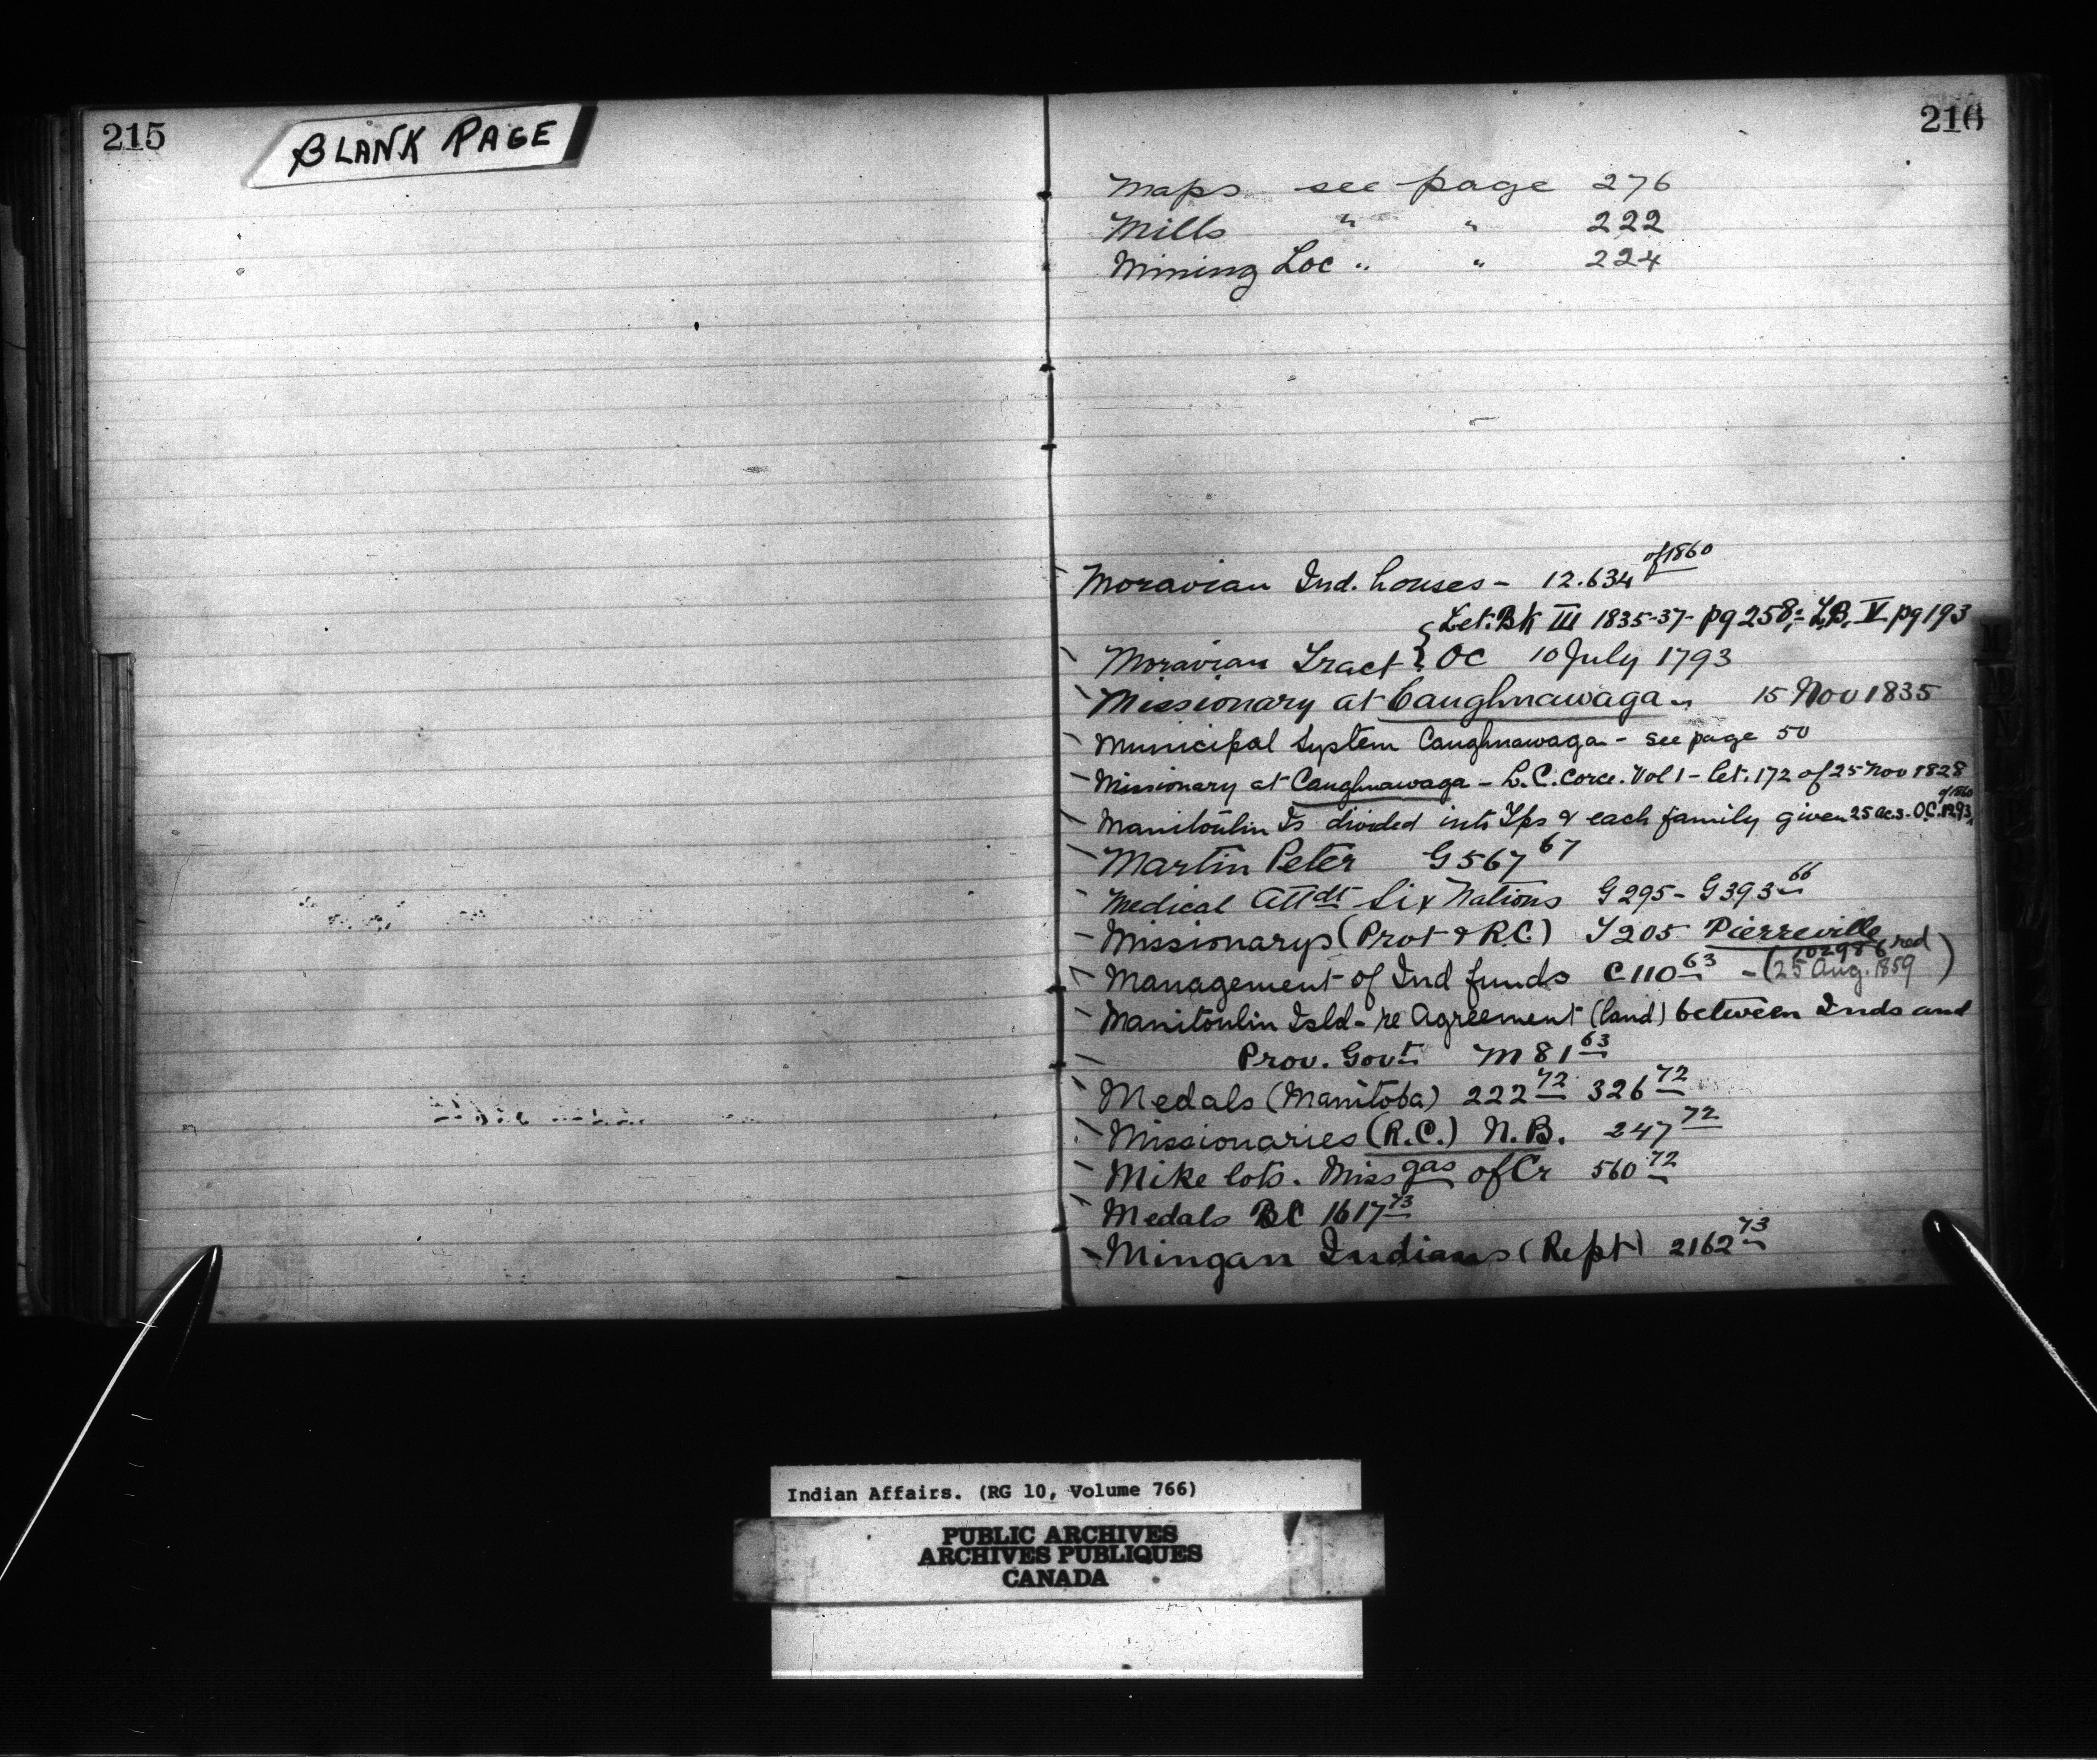 215
BLANK PAGE
216
Maps see page 276
Mills " " 222
Mining Loc " " 224
Moravian Ind. houses - 12.634 of 1860
Let. Bk III 1835-37- pg 258; L.B. V pg 193
Moravian Tract OC 10 July 1793
Missionary at Caughnawaga " 15 Nov 1835
Municipal System Caughnawaga - see page 50
Missionary at Caughnawaga - L.C. Corce. Vol 1 - let. 172 of 25 Nov 1828
Manitoulin Is divided into Tps & each family given 25 acs - O.C. 1293 of 1860
Martin Peter G567 67
Medical Attdt Six Nations G295 - G393 66
Missionarys (Prot & R.C.) T205 Pierreville
Management of Ind funds C110 63 - (25 Aug. 1859 102986 red)
Manitoulin Isld - re Agreement (land) between Inds and
Prov. Govt. M81 63
Medals (Manitoba) 222 72 326 72
Missionaries (R.C.) N.B. 247 72
Mike lots. Missgas of Cr 560 72
Medals BC 1617 73
Mingan Indians (Rept) 2162 73
Indian Affairs. (RG 10, Volume 766)
PUBLIC ARCHIVES
ARCHIVES PUBLIQUES
CANADA